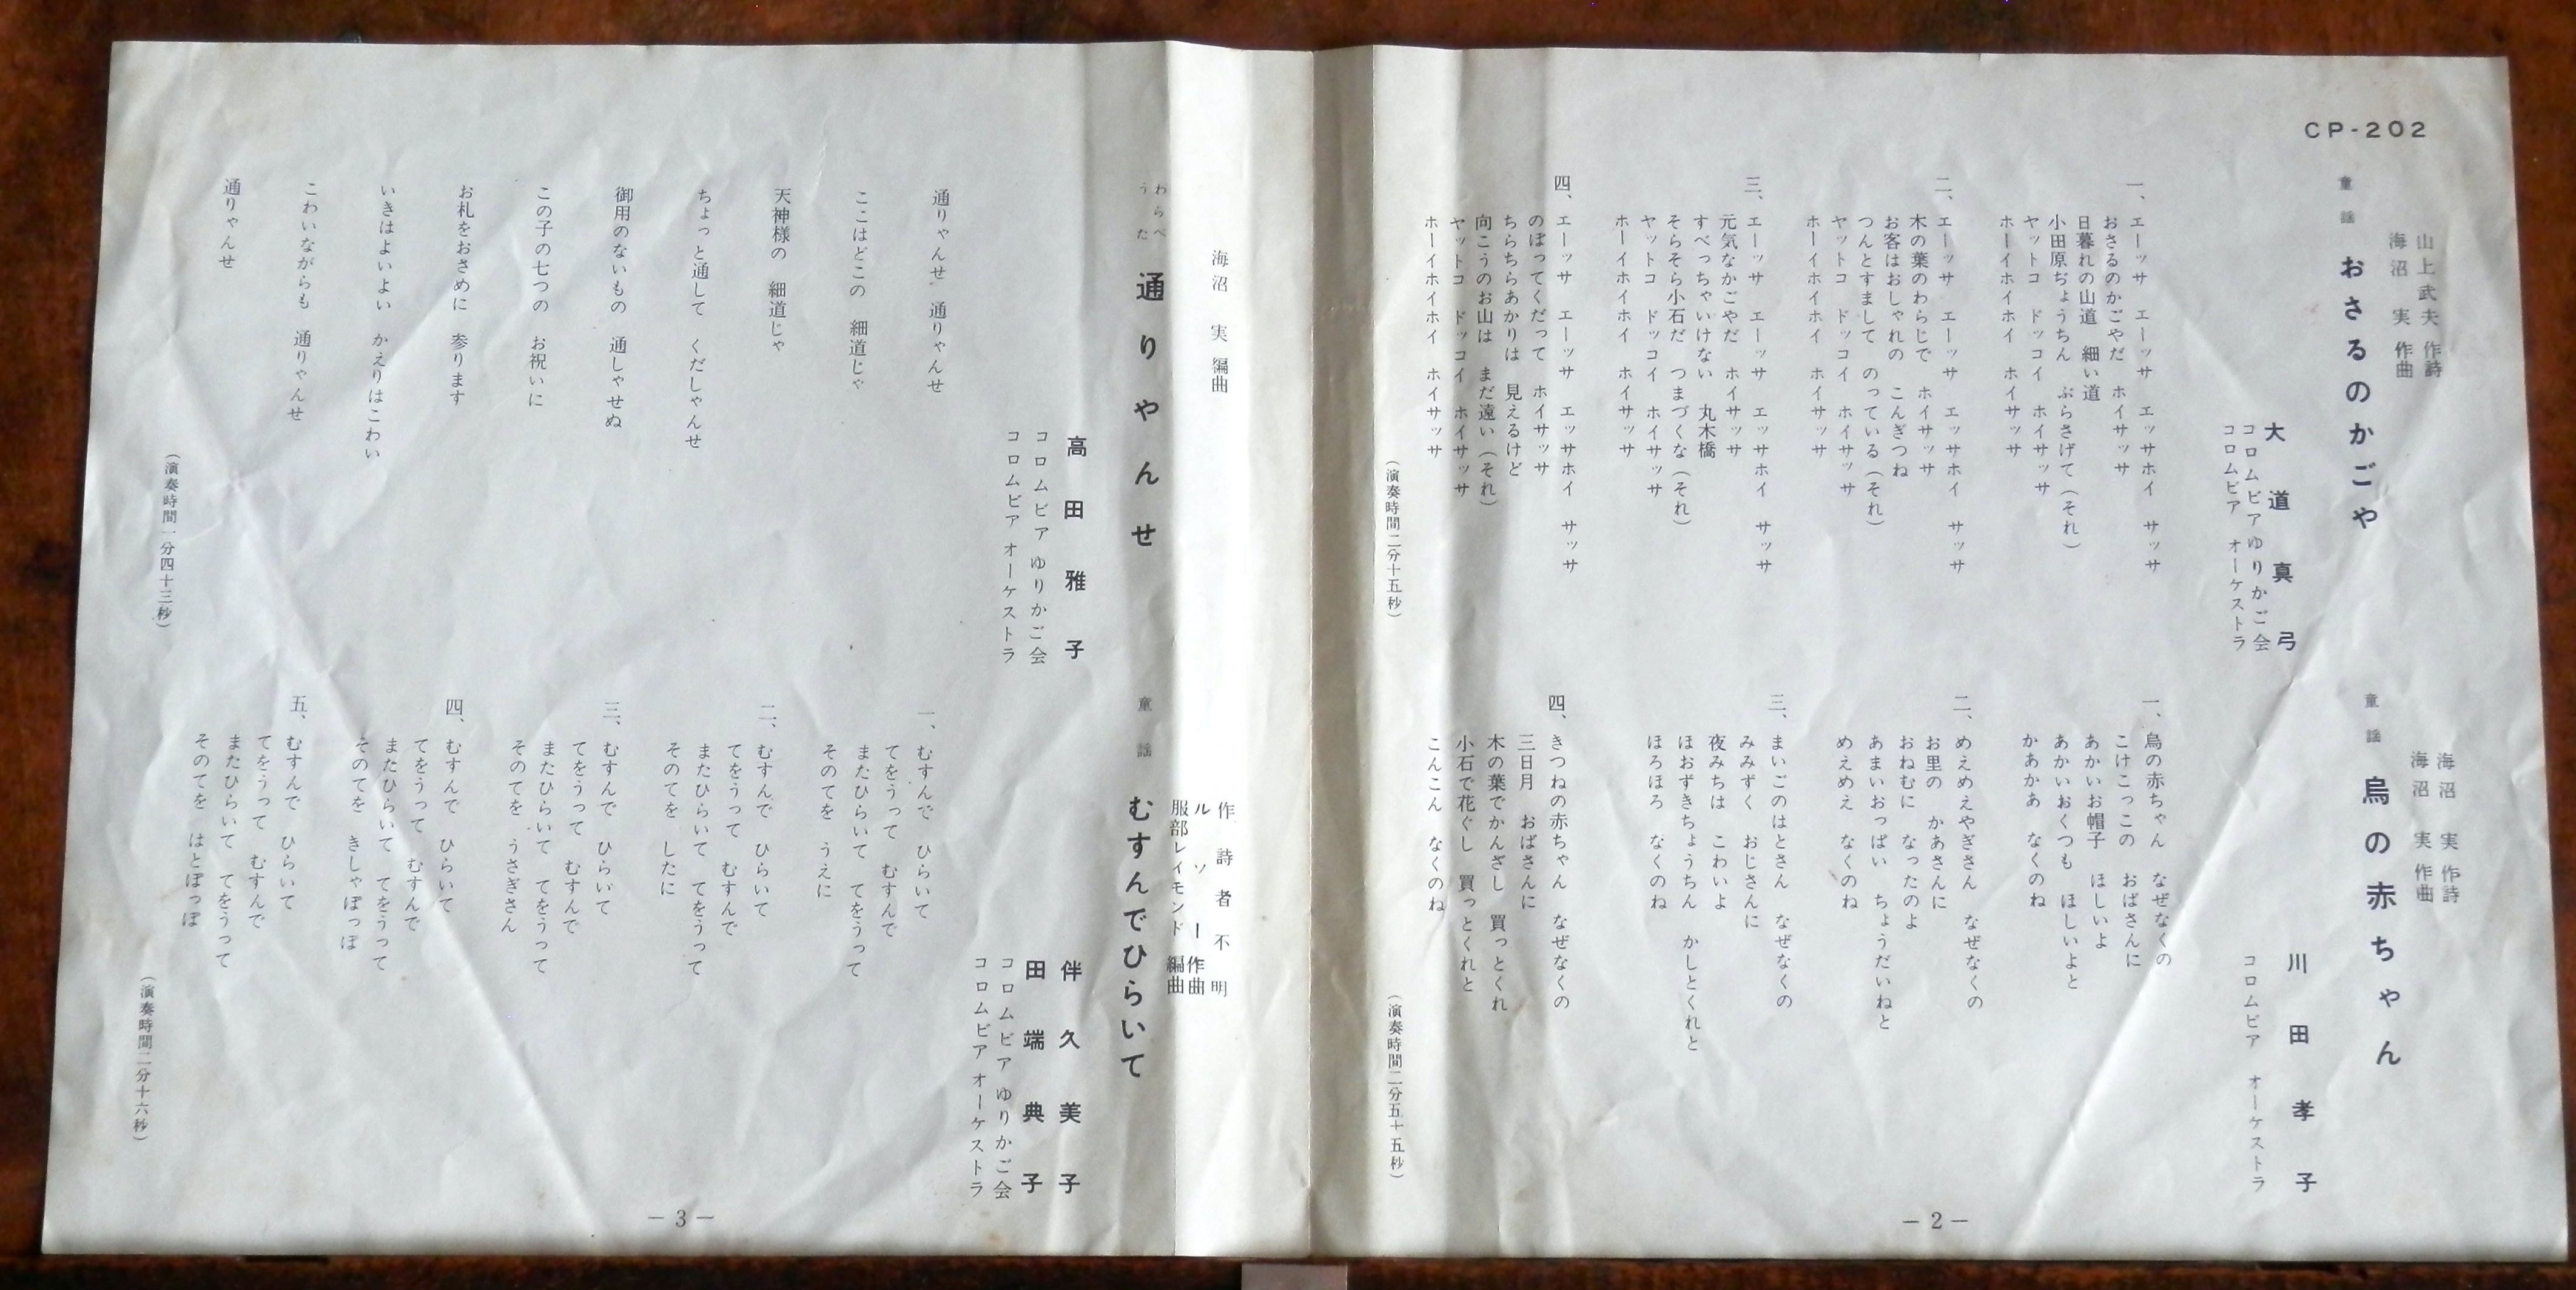 CP-202
山上武夫 作詩
海沼 実 作曲
童謡 おさるのかごや
大道真弓
コロムビアゆりかご会
コロムビア オーケストラ
一、エーッサ エーッサ エッサホイ サッサ
おさるのかごやだ ホイサッサ
日暮れの山道 細い道
小田原ぢょうちん ぶらさげて(それ)
ヤットコ ドッコイ ホイサッサ
ホーイホイホイ ホイサッサ
二、エーッサ エーッサ エッサホイ サッサ
木の葉のわらじで ホイサッサ
お客はおしゃれの こんぎつね
つんとすまして のっている(それ)
ヤットコ ドッコイ ホイサッサ
ホーイホイホイ ホイサッサ
三、エーッサ エーッサ エッサホイ サッサ
元気なかごやだ ホイサッサ
すべっちゃいけない 丸木橋
そらそら小石だ つまづくな(それ)
ヤットコ ドッコイ ホイサッサ
ホーイホイホイ ホイサッサ
四、エーッサ エーッサ エッサホイ サッサ
のぼってくだって ホイサッサ
ちらちらあかりは 見えるけど
向こうのお山は まだ遠い(それ)
ヤットコ ドッコイ ホイサッサ
ホーイホイホイ ホイサッサ
(演奏時間二分十五秒)
海沼 実 作詩
海沼 実 作曲
童謡 烏の赤ちゃん
川田孝子
コロムビア オーケストラ
一、烏の赤ちゃん なぜなくの
こけこっこの おばさんに
あかいお帽子 ほしいよ
あかいおくつも ほしいよと
かあかあ なくのね
二、めえめえやぎさん なぜなくの
お里の かあさんに
おねむに なったのよ
あまいおっぱい ちょうだいねと
めえめえ なくのね
三、まいごのはとさん なぜなくの
みみずく おじさんに
夜みちは こわいよ
ほおずきちょうちん かしとくれと
ほろほろ なくのね
四、きつねの赤ちゃん なぜなくの
三日月 おばさんに
木の葉でかんざし 買っとくれ
小石で花ぐし 買っとくれと
こんこん なくのね
(演奏時間二分五十五秒)
－2－
海沼 実 編曲
わらべうた 通りゃんせ
高田雅子
コロムビア ゆりかご会
コロムビア オーケストラ
通りゃんせ 通りゃんせ
ここはどこの 細道じゃ
天神様の 細道じゃ
ちょっと通して くだしゃんせ
御用のないもの 通しゃせぬ
この子の七つの お祝いに
お札をおさめに 参ります
いきはよいよい かえりはこわい
こわいながらも 通りゃんせ
通りゃんせ
(演奏時間一分四十三秒)
作詩者不明
ルソー 作曲
服部レイモンド 編曲
童謡 むすんでひらいて
伴久美子
田端典子
コロムビア ゆりかご会
コロムビア オーケストラ
一、むすんで ひらいて
てをうって むすんで
またひらいて てをうって
そのてを うえに
二、むすんで ひらいて
てをうって むすんで
またひらいて てをうって
そのてを したに
三、むすんで ひらいて
てをうって むすんで
またひらいて てをうって
そのてを うさぎさん
四、むすんで ひらいて
てをうって むすんで
またひらいて てをうって
そのてを きしゃぽっぽ
五、むすんで ひらいて
てをうって むすんで
またひらいて てをうって
そのてを はとぽっぽ
(演奏時間二分十六秒)
－3－